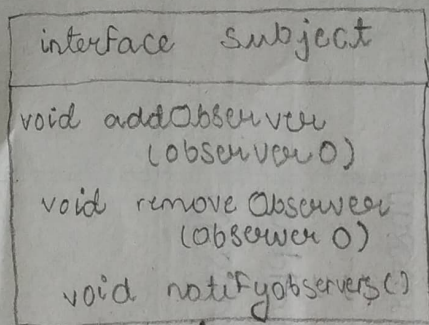 interface subject
void addObserver
(observer O)
void remove Observer
(Observer O)
void notifyobservers()